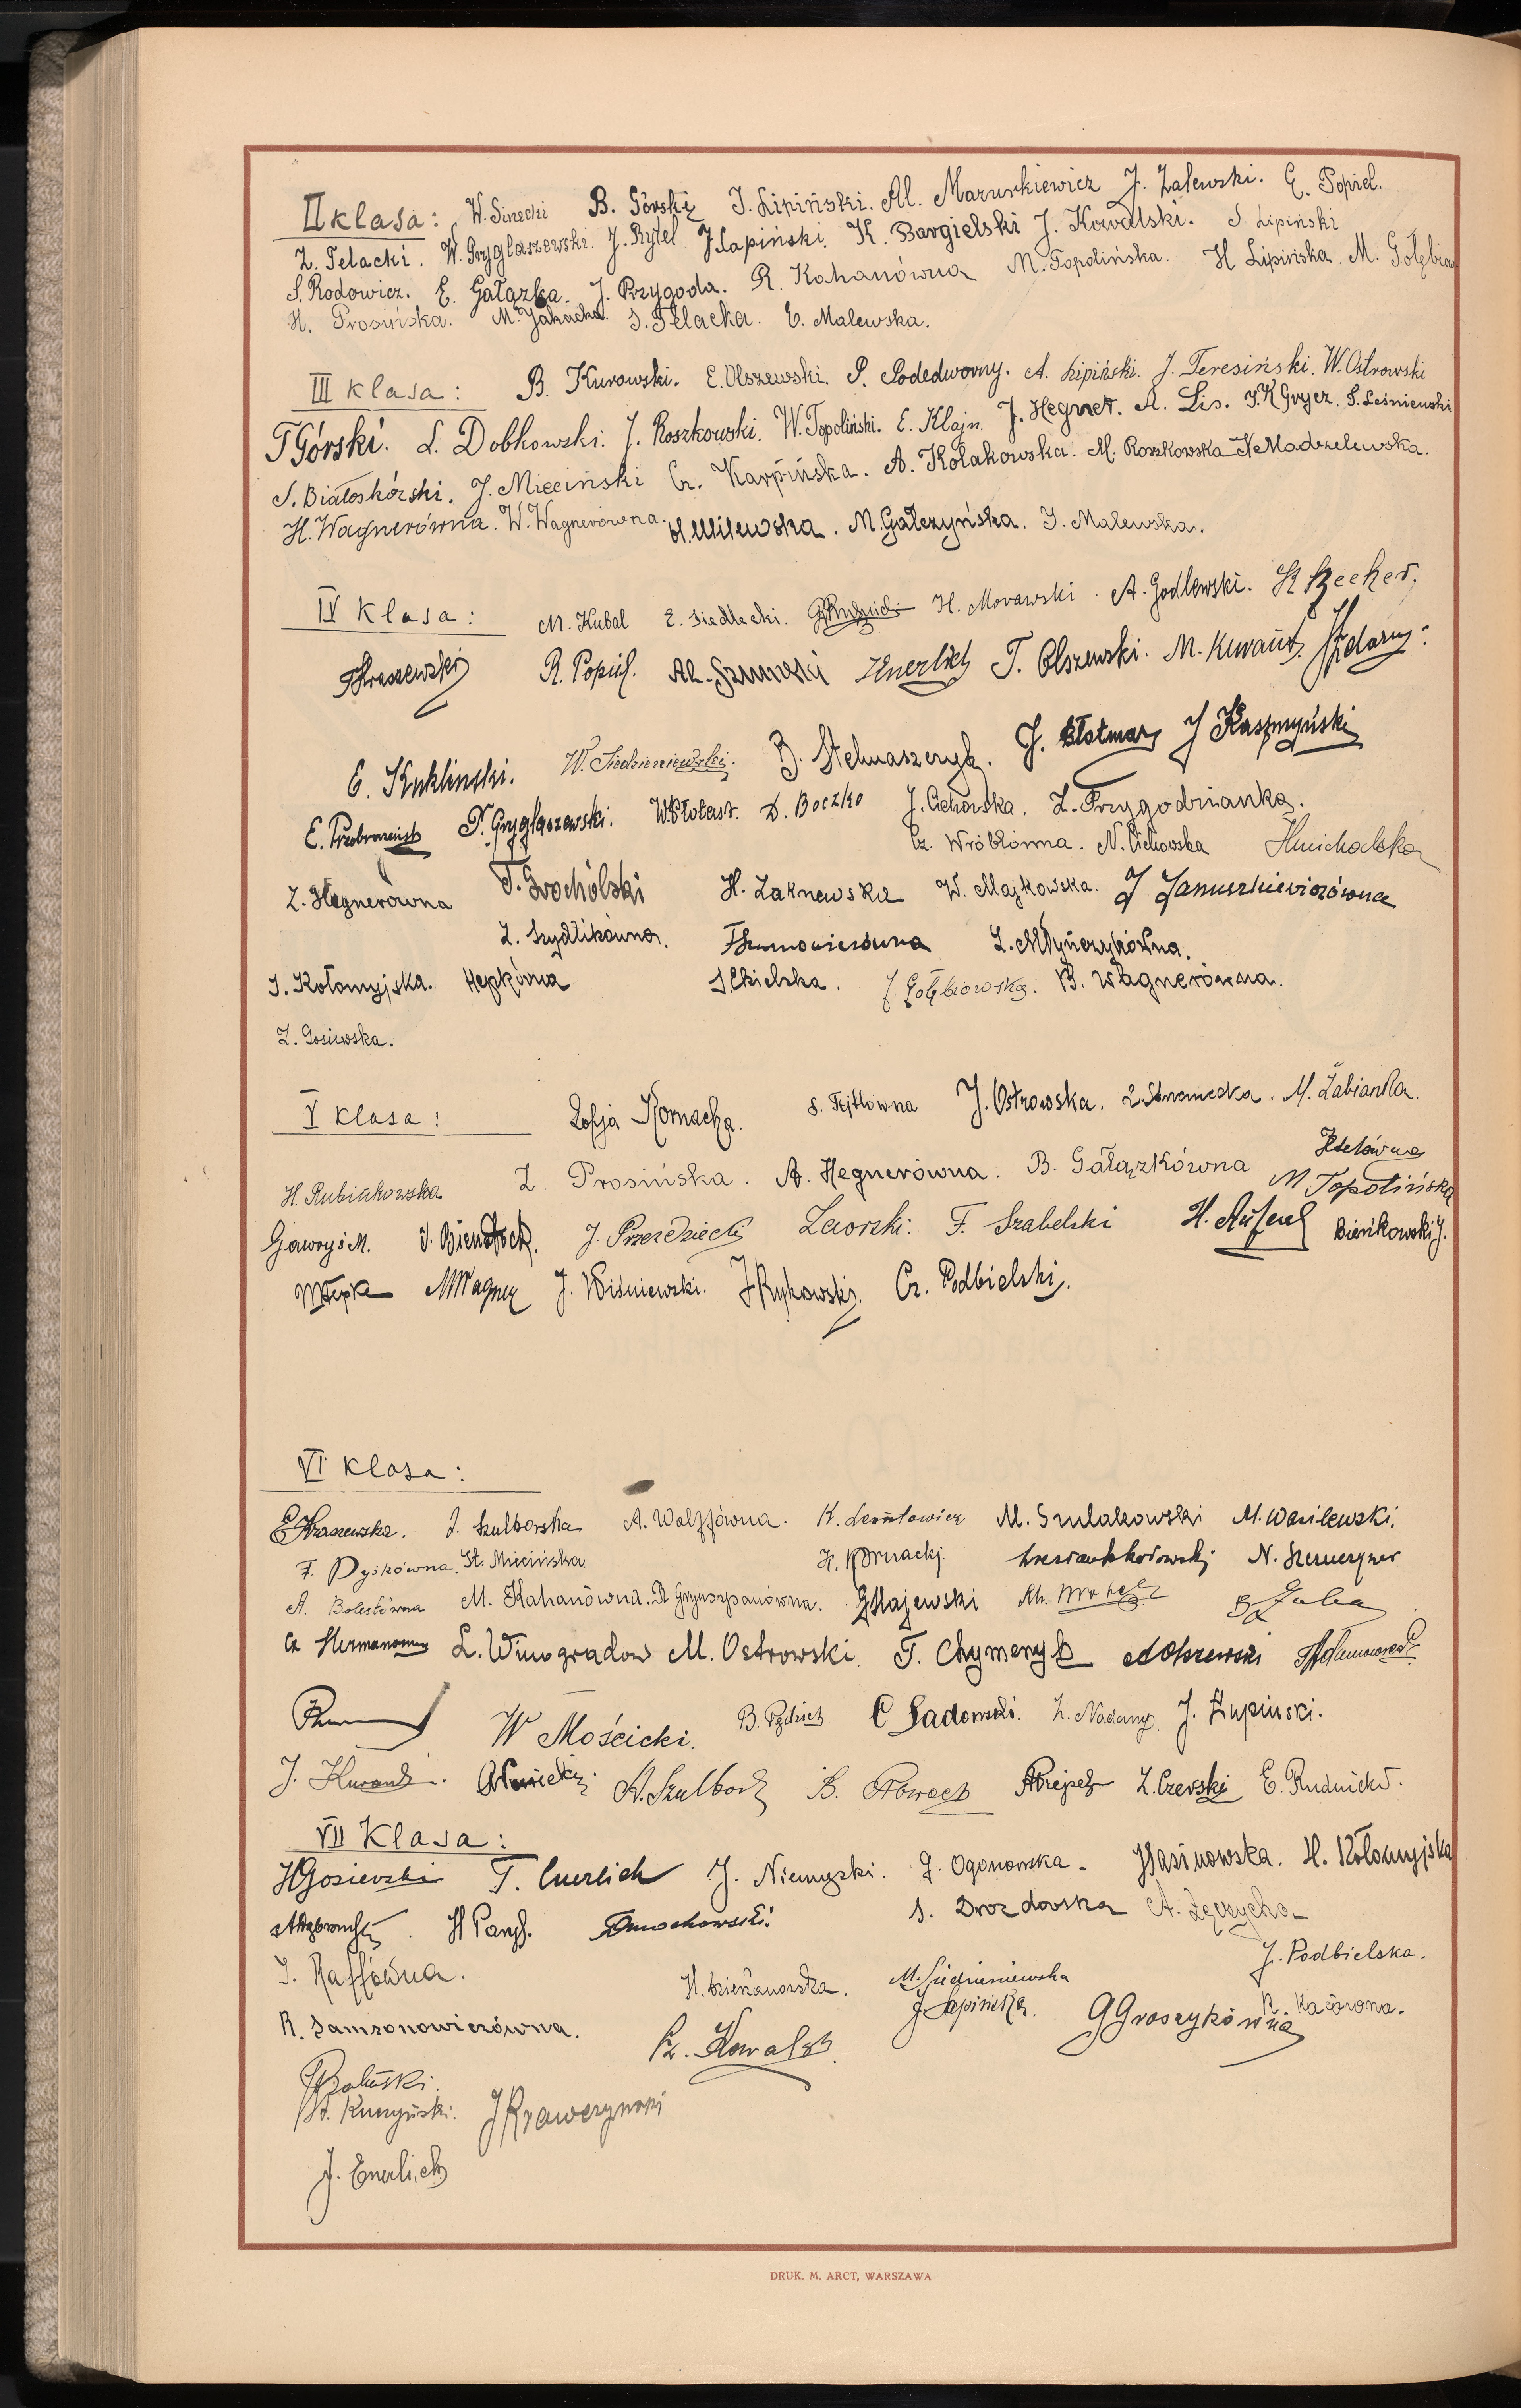 II klasa: W. Sinecki B. Górski J. Lipiński. Al. Mazurkiewicz J. Zalewski. E. Popiel.
Z. Telacki. W. Gryglaszewski. J. Rytel J. Łapiński. K. Bargielski J. Kowalski. S. Lipiński
S. Rodowicz. E. Gałązka. J. Przygoda. R. Kahanówna M. Topolińska. H Lipińska. M. Gołębio
H. Prosińska. M. Jakacka. S. Telacka. E. Malewska.
III klasa: B. Kurowski. E. Olszewski. P. Podedworny. A. Lipiński. J. Teresiński. W. Ostrowski
T Górski. L. Dobkowski. J. Roszkowski. W. Topoliński. E. Klajn. J. Hegner. A. Lis. J. K Grycz. S. Leśniewski
S. Białoskórski. J. Mieciński Cz. Karpińska. A. Kołakowska. M. Roszkowska N Modzelewska.
H. Wagnerówna. W. Wagnerówna. H. Milewska. M. Gałczyńska. J. Malewska.
IV klasa: M. Kubal E. Siedlecki. H. Morawski. A. Godlewski. K Becker.
T Kraszewski R. Popiel. Al. Szumski Enerlich T. Olszewski. M. Kurant.
E. Kukliński. W. Siedzieniewski. B. Stelmaszczyk. J. J Kaszmyński
E. Przeobrazeński P. Gryglaszewski. W. Płotast. D. Boczko J. Cichowska. Z. Przygodzianka.
Cz. Wróblówna. N. Cichowska H Michalska
Z. Hegnerówna T. Grochólski H. Zaknewska W. Majkowska. J Januszkiewiczówna
Z. Szydlikówna. Z. Młyńczykówna.
J. Kołomyjska. Hepkówna J. Gołębiowska. B. Wagnerówna.
Z. Gosiewska.
V klasa: Zofja Kornacka. S. Fejtlówna J. Ostrowska. M. Żabianka.
H. Rubinkowska Z. Prosińska. A. Hegnerówna. B. Gałązkówna M Topolińska
Gawryś M. J. Bienstock. J. Przezdziecki F. Szabelski Bieńkowski J.
M Wagner J. Wiśniewski. J Rykowski. Cz. Podbielski.
VI klasa:
E Kraszewska. J. Szulborska A. Wolffówna. K. Leontowicz M. Szulakowski M. Wasilewski.
F. Dyskówna. St. Miecińska K. Kornacki. N. Szerucyner
A. Bolestówna M. Kahanówna. R Grynszpanówna. G Majewski
Cz Hermanowicz L. Winogradow M. Ostrowski. T. Chymczyk A Olszewski
W Mościcki. C Sadowski. Z. Nadany. J. Łupiński.
J. Kurant. A. Szulborz B. Nowack Z. Czerski E. Rudnicki.
VII Klasa:
H Gosiewski T. Enerlich J. Niemyski. J. Ogonowska. J Jasinowska. H. Kołomyjska
H Parys. Dmochowski. S. Drozdowska A. Łęczycka
J. Raffówna. H. Dzierżanowska. M. Siedzieniewska J. Podbielska.
R. Samsonowiczówna. Cz. Kowalski J Łapińska. G Groszykówna R. Kacówna.
St. Kuczyński. J Krawczyński
J. Enerlich
DRUK. M. ARCT, WARSZAWA